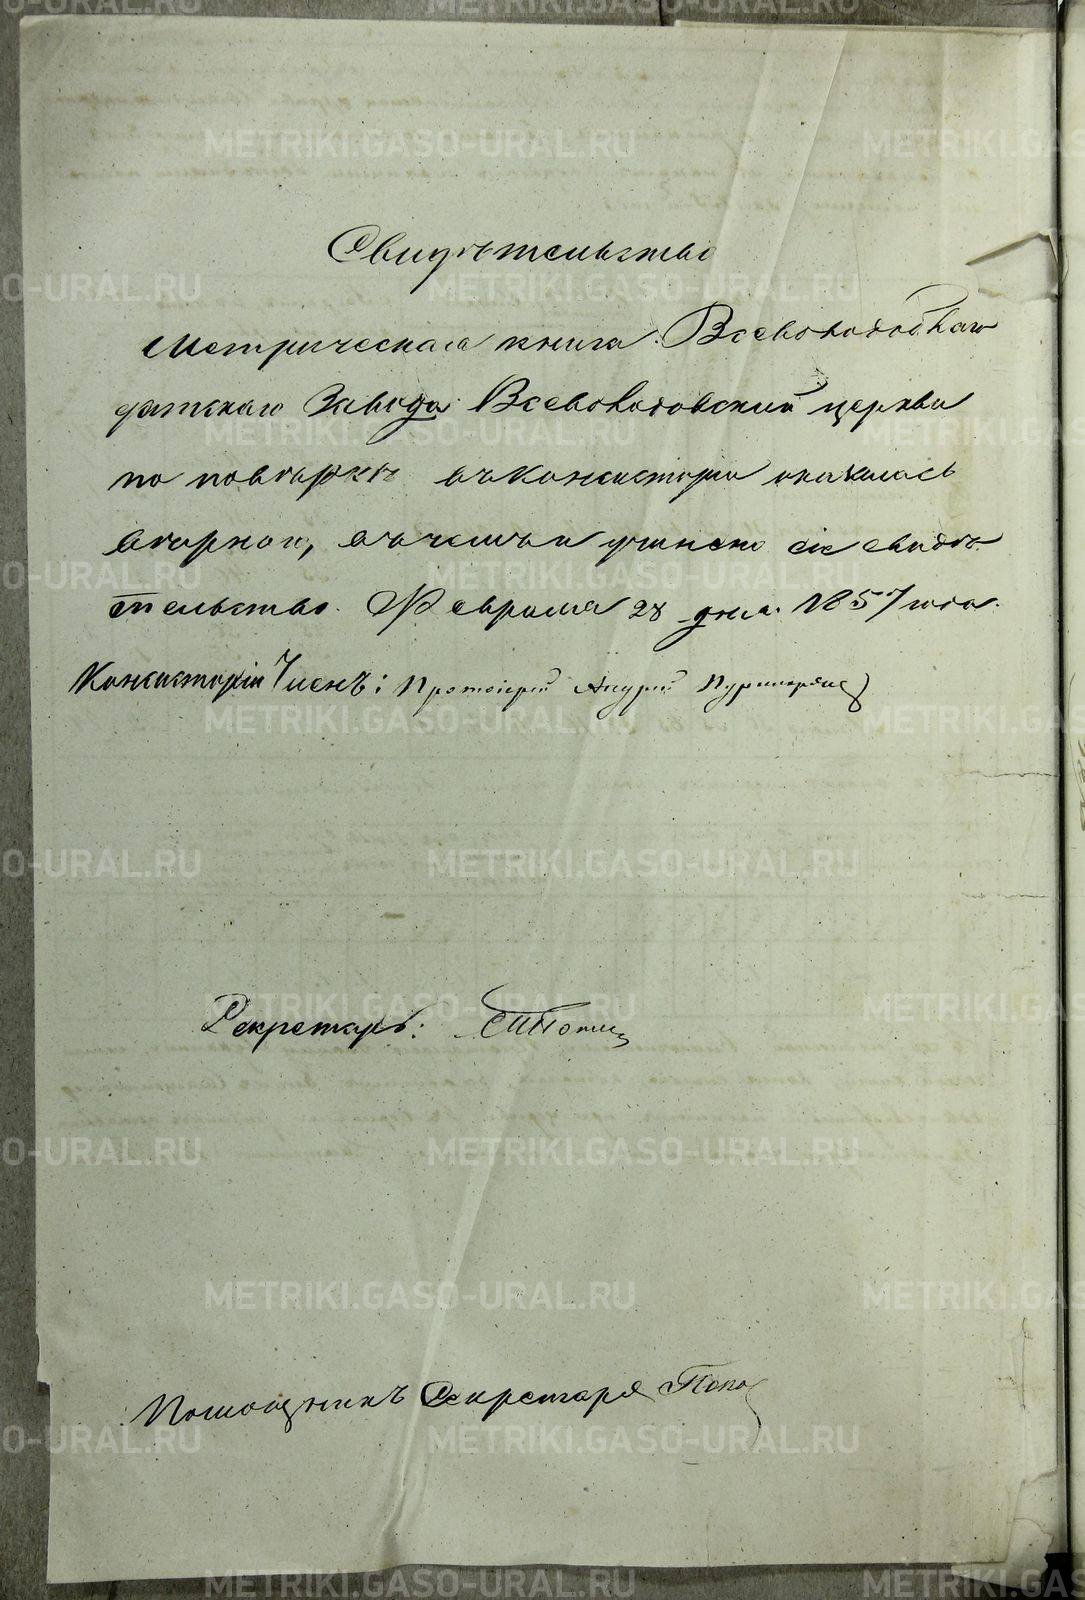 Свидѣтельство
Метрическая книга Всеволодоблаго
датскаго Завода Всеволодовской церкви
по повѣркѣ въ Консисторіи оказалась
вѣрною, въ чемъ и учинено сіе свидѣ-
тельство. Февраля 28 дня 1857 года.
Консисторіи Членъ: Протоіерей Андрей
Секретарь:
Помощникъ Секретаря Попо
METRIKI.GASO-URAL.RU